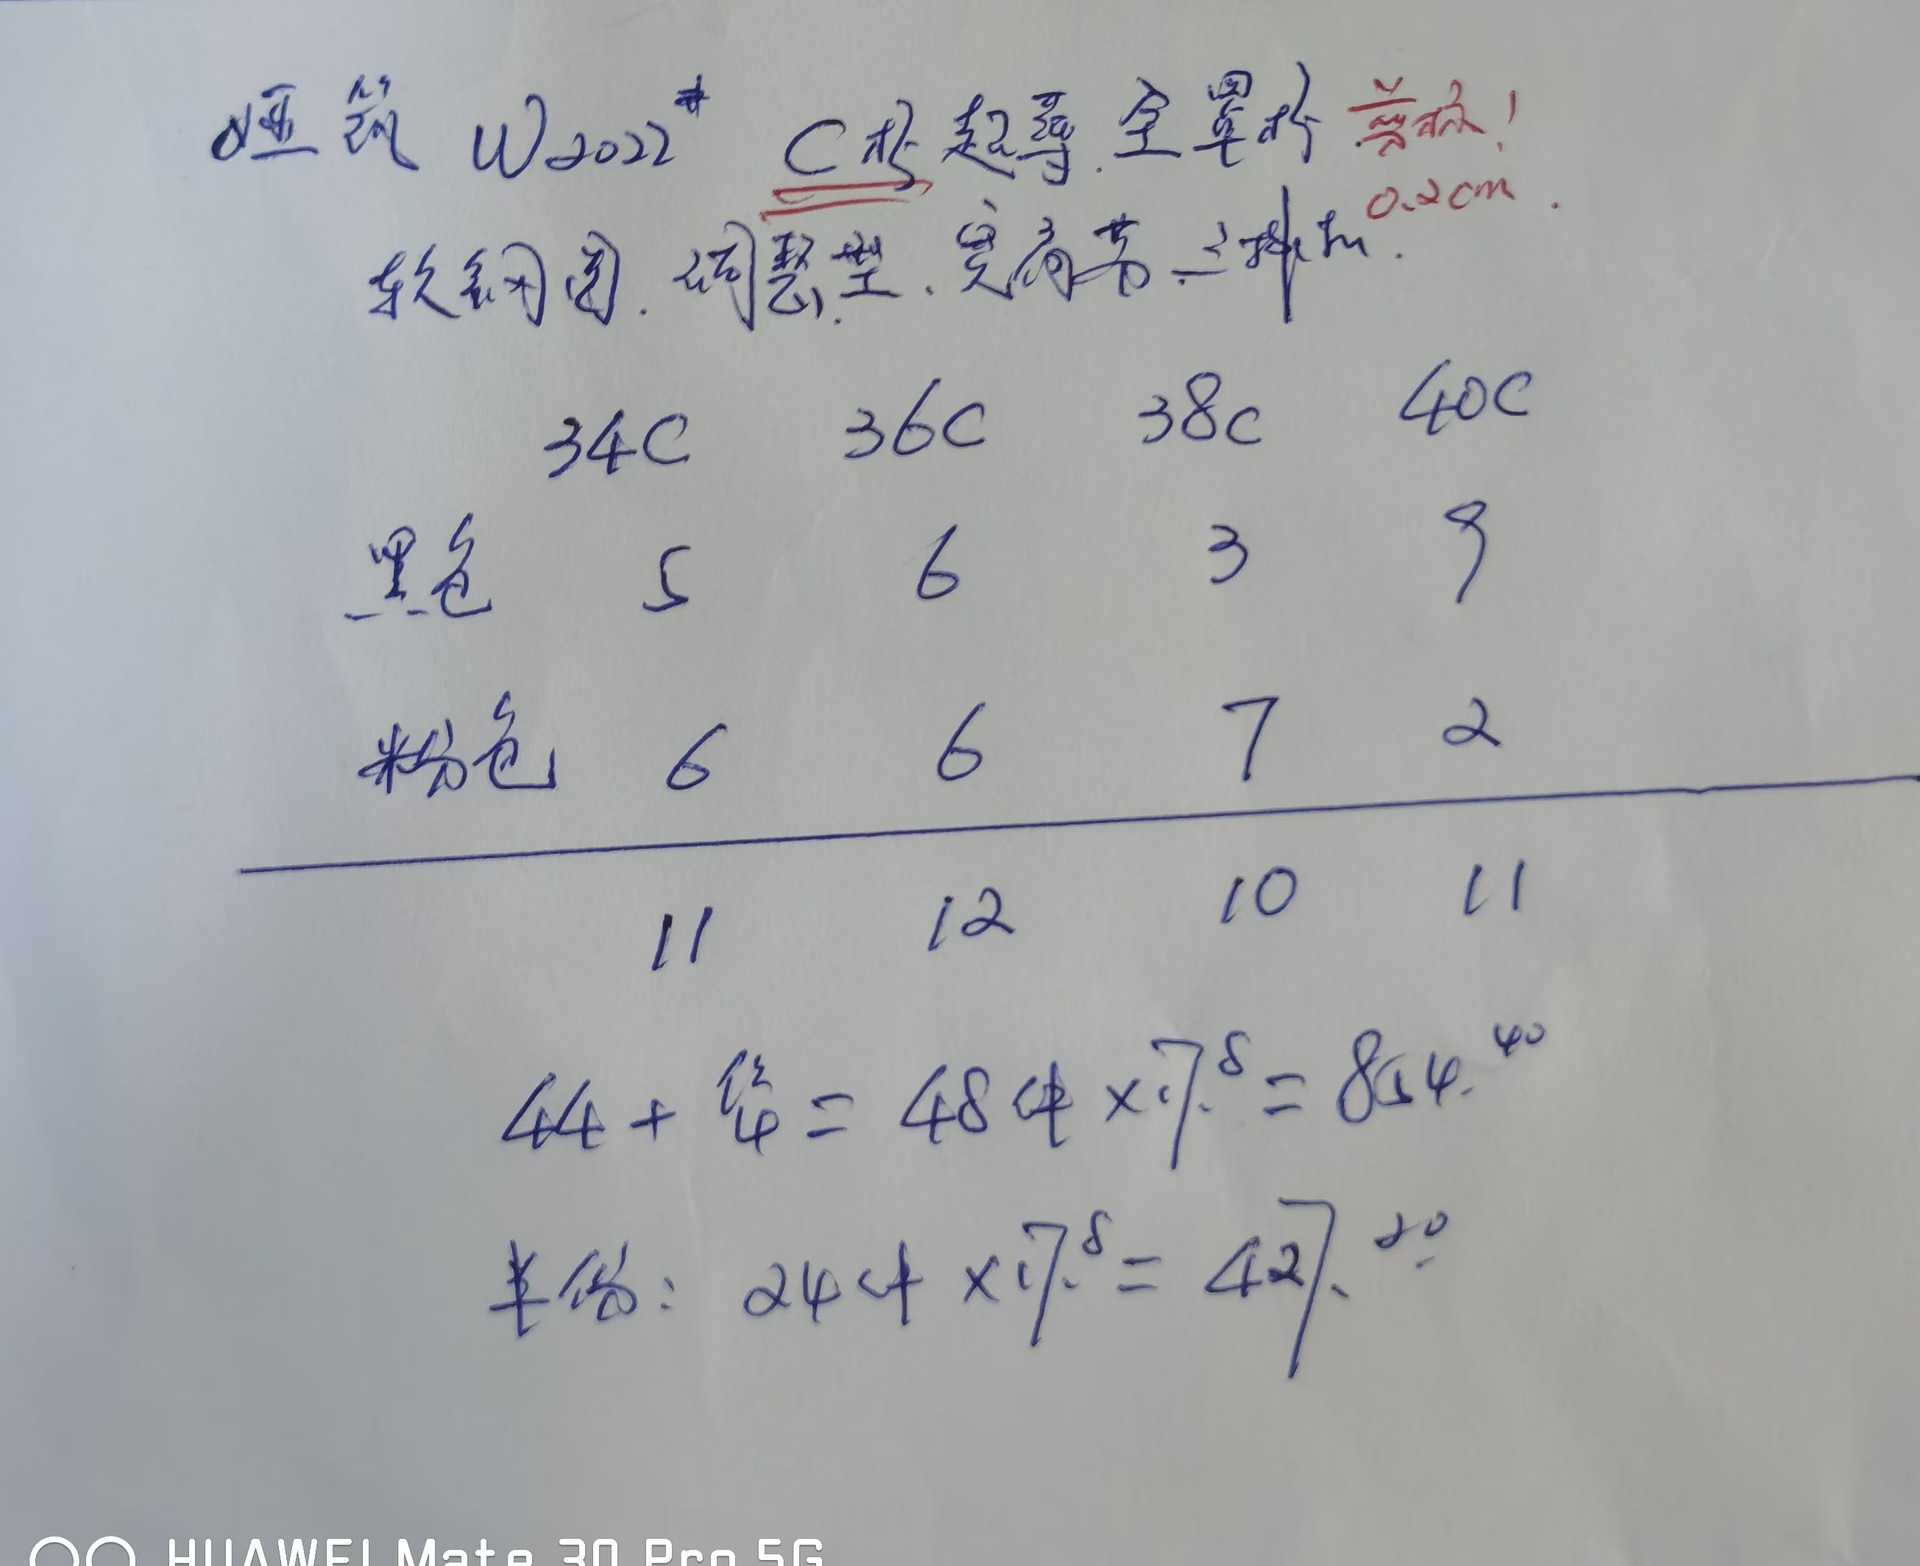 W2022# C杯起 全罩杯 薄杯!
0.2cm.
软钢圈.调整型.宽肩带 三排扣.
34C 36C 38C 40C
黑色 5 6 3 9
粉色 6 6 7 2
11 12 10 11
44 + 4 = 48件 × 17.8 = 854.40
半份: 24件 × 17.8 = 427.20
HUAWEI Mate 30 Pro 5G